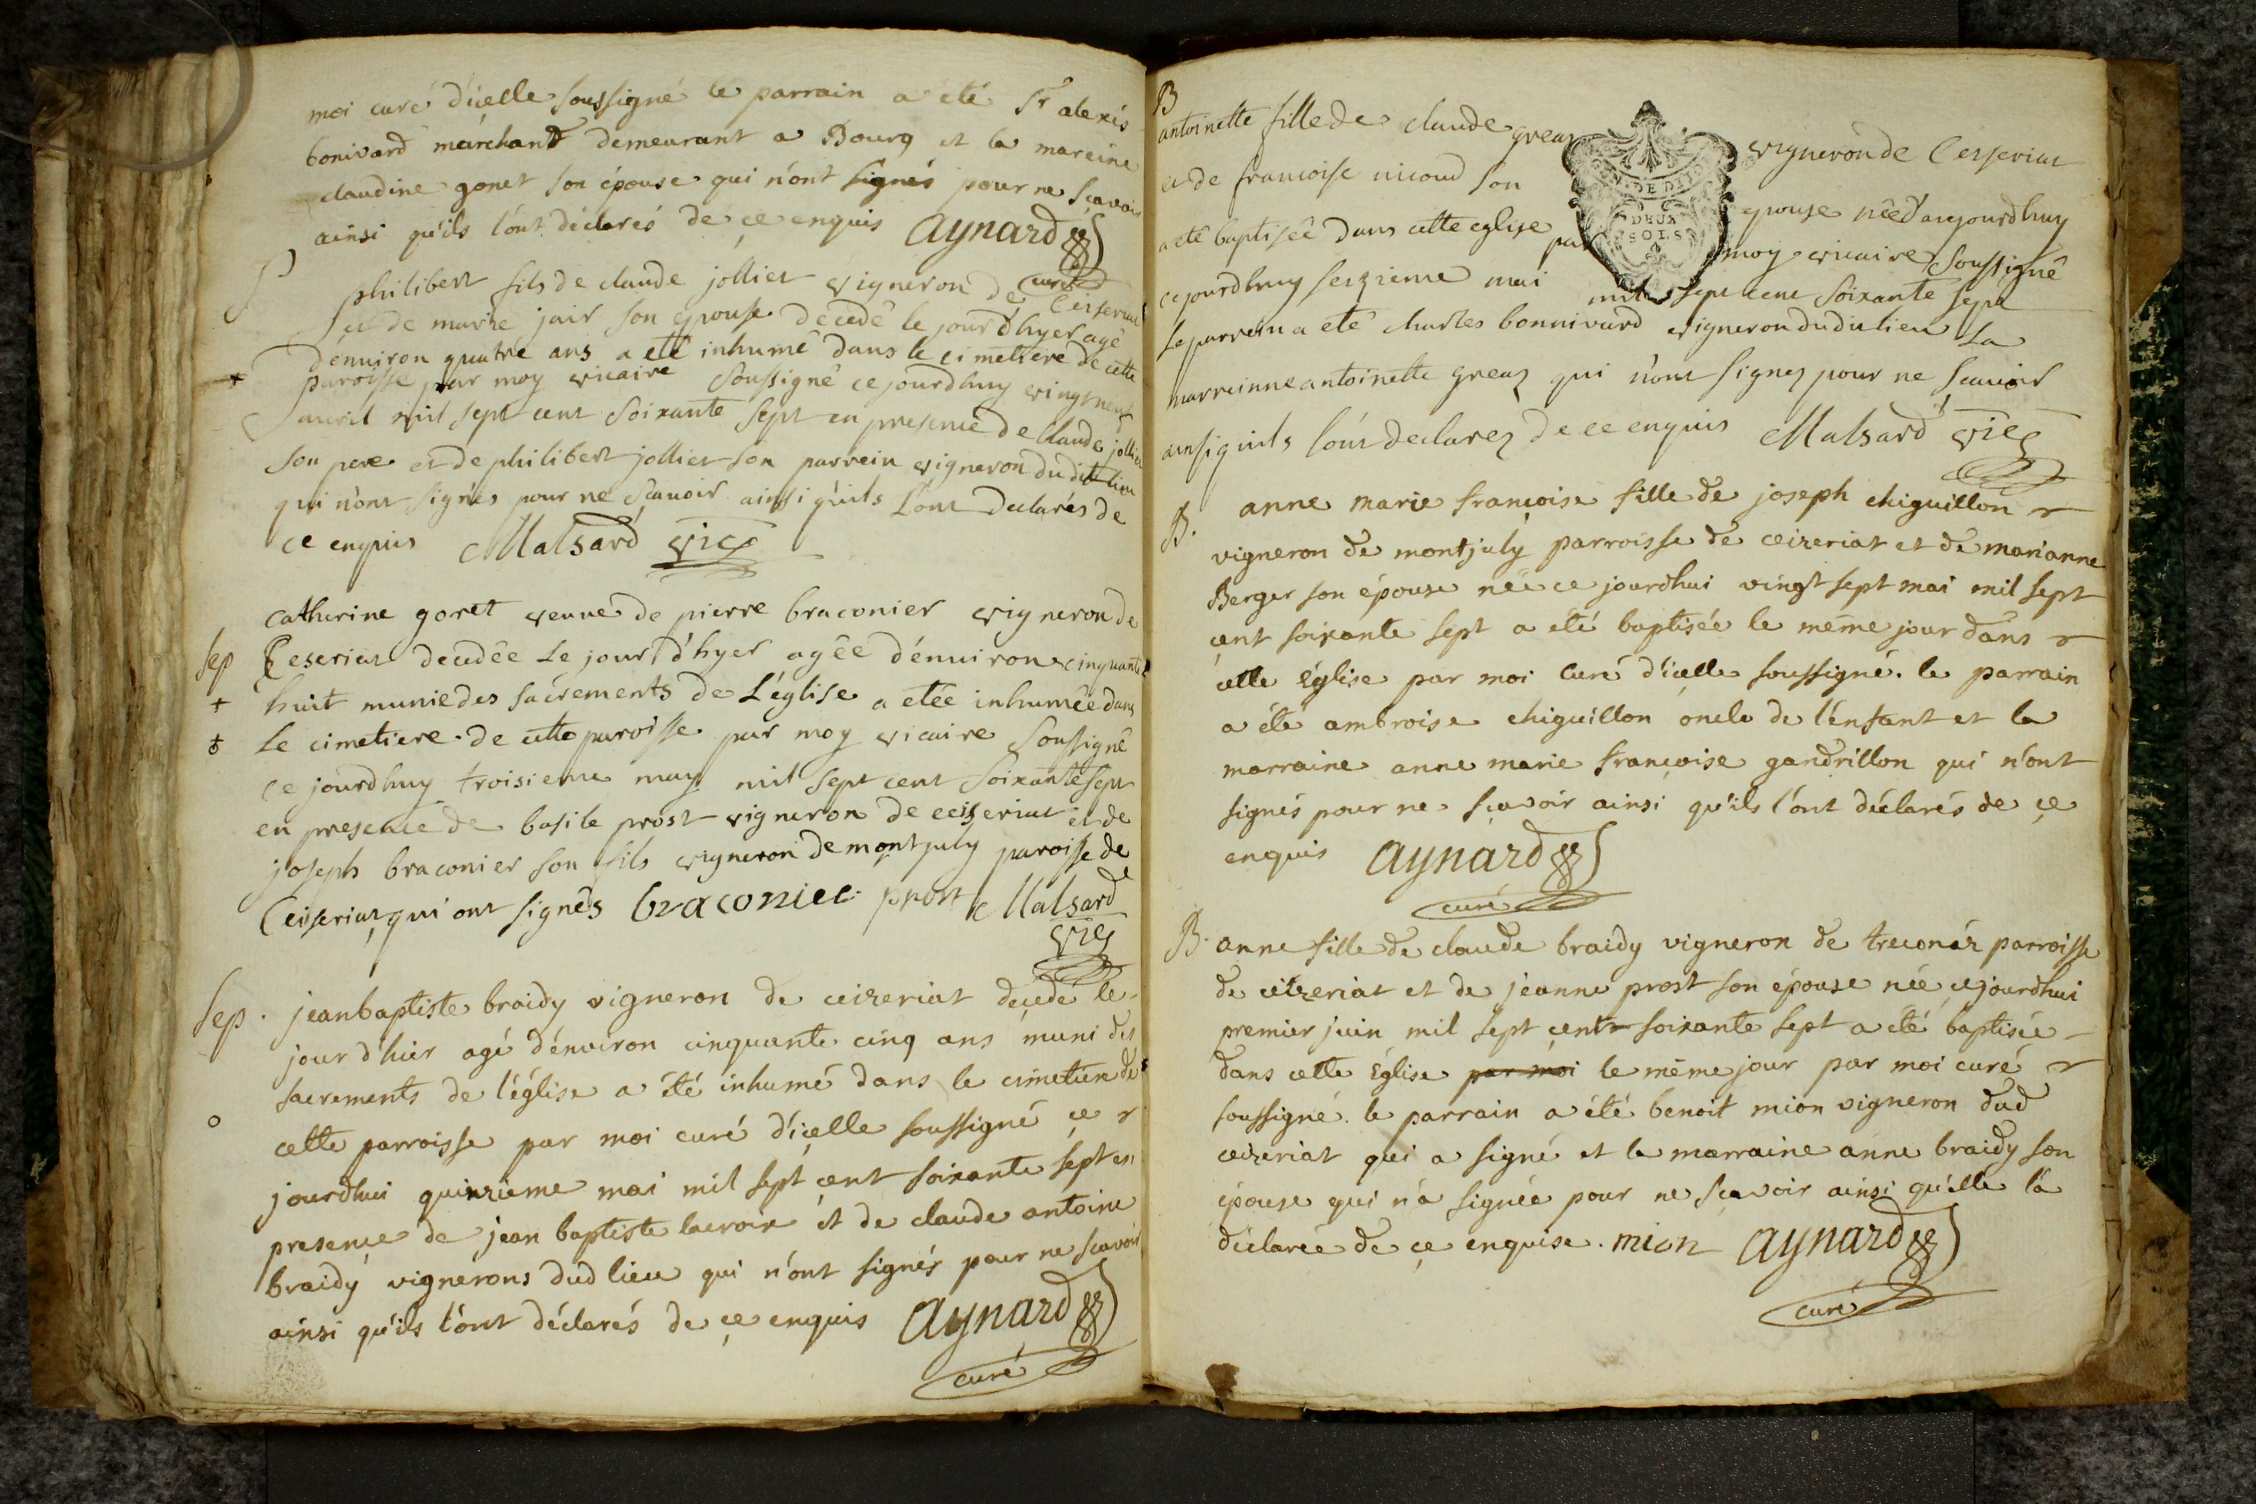 moi curé d'icelle soussigné le parrain a été Sr alexis
bonivard marchand demeurant a Bourg et la mareine
claudine gonet son épouse qui n'ont signés pour ne scavoir
ainsi qu'ils l'ont déclarés de çe enquis aynard
curé
philibert fils de claude jollier vigneron de Ceiseriat
et de marie jair son epouse décedé le jour d'hyer agé
d'enuiron quatre ans a eté inhumé dans le cimetiere de cette
+ paroisse par moy vicaire soussigné ce jourd'huy vingt neuf
auril mil sept cent soixante sept en presence de claude jollier
son pere et de philibert jollier son parrein vigneron du dit lieu
qui n'ont signés pour ne scauoir ainsi qu'ils l'ont declarés de
ce enquis Malsard vic
catherine goret veuue de pierre braconier vigneron de
Sep Ceseriat decedée le jour d'hyer agée d'enuiron cinquante
+ huit munie des sacrements de l'église a etée inhumée dans
le cimetiere de cette paroisse par moy vicaire soussigné
ce jourd'huy troisieme may mil sept cent soixante sept
en presence de basile prost vigneron de ceizeriat et de
joseph braconier son fils vigneron de montjuly paroisse de
Ceiseriat qui ont signés braconier prost Malsard
vic
Sep. jean baptiste braidy vigneron de ceizeriat décedé le
jour d'hier agé d'environ cinquante cinq ans muni des
sacrements de l'église a été inhumé dans le cimetiere de
o cette parroisse par moi curé d'icelle soussigné çe
jourdhui quinzieme mai mil sept çent soixante sept en
presence de jean baptiste lacroix et de claude antoine
braidy vignerons dud lieu qui n'ont signés pour ne scavoir
ainsi qu'ils l'ont déclarés de çe enquis aynard
curé
B
antoinette fille de claude greaz vigneron de Cesseriat
et de francoise nicoud son epouse née d'aujourdhuy
a eté baptisée dans cette eglise par moy vicaire soussigné
cejourdhuy seizieme mai mil sept cent soixante sept
le parrein a eté charles bonnivard vigneron dudit lieu la
marreinne antoinette greaz qui n'ont signez pour ne scauoir
ainsi qu'ils l'ont declarez de ce enquis Malsard vic
DEUX
SOLS
B. anne marie françoise fille de joseph chiguillon
vigneron de montjuly parroisse de ceizeriat et de marianne
Berger son épouse née ce jourdhui vingt sept mai mil sept
çent soixante sept a été baptisée le même jour dans
cette Église par moi curé d'icelle soussigné. le parrain
a été ambroise chiguillon oncle de l'enfant et la
marraine anne marie françoise gandrillon qui n'ont
signés pour ne sçavoir ainsi qu'ils l'ont déclarés de çe
enquis aynard
curé
B. anne fille de claude braidy vigneron de treconaz parroisse
de ceizeriat et de jeanne prost son épouse née cejourdhui
premier juin mil sept cent soixante sept a été baptisée
dans cette Église par moi le même jour par moi curé
soussigné. le parrain a été benoit mion vigneron dud
ceizeriat qui a signé et la marraine anne braidy son
épouse qui n'a signée pour ne sçavoir ainsi qu'elle l'a
déclarée de çe enquise. mion aynard
curé